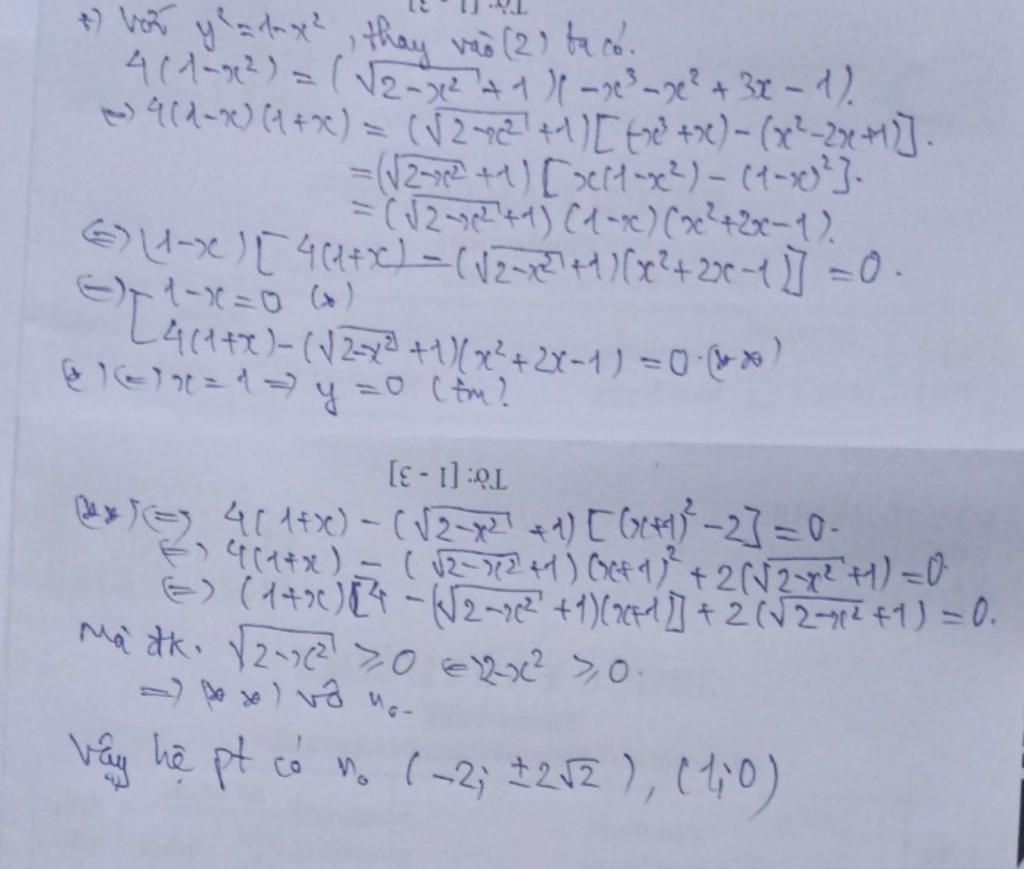 Tờ: [1 - 3]
+) Với y² = 1-x², thay vào (2) ta có.
4(1-x²) = (√(2-x²) + 1)(-x³-x²+3x-1).
⇔ 4(1-x)(1+x) = (√(2-x²) +1)[(-x³+x)-(x²-2x+1)].
= (√(2-x²) +1)[x(1-x²) - (1-x)²].
= (√(2-x²) +1)(1-x)(x²+2x-1).
⇔ (1-x)[4(1+x) - (√(2-x²) +1)(x²+2x-1)] = 0.
⇔ [ 1-x=0 (*)
4(1+x)-(√(2-x²) +1)(x²+2x-1) = 0. (**)
(*) ⇔ x = 1 ⇒ y = 0 (tm)
Tờ: [1 - 3]
(**) ⇔ 4(1+x) - (√(2-x²) +1)[(x+1)²-2] = 0.
⇔ 4(1+x) - (√(2-x²) +1)(x+1)² + 2(√(2-x²) +1) = 0
⇔ (1+x)[4 - (√(2-x²) +1)(x+1)] + 2(√(2-x²) +1) = 0.
Mà đk. √(2-x²) ⩾ 0 ⇔ 2-x² ⩾ 0.
⇒ (**) vô n₀.
Vậy hệ pt có n₀ (-2; ±2√2), (1;0)